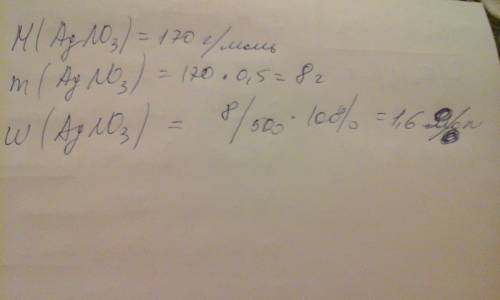 M(AgNO₃) = 170 г/моль
m(AgNO₃) = 170 · 0,5 = 8 г
W(AgNO₃) = 8/500 · 100% = 1,6 %